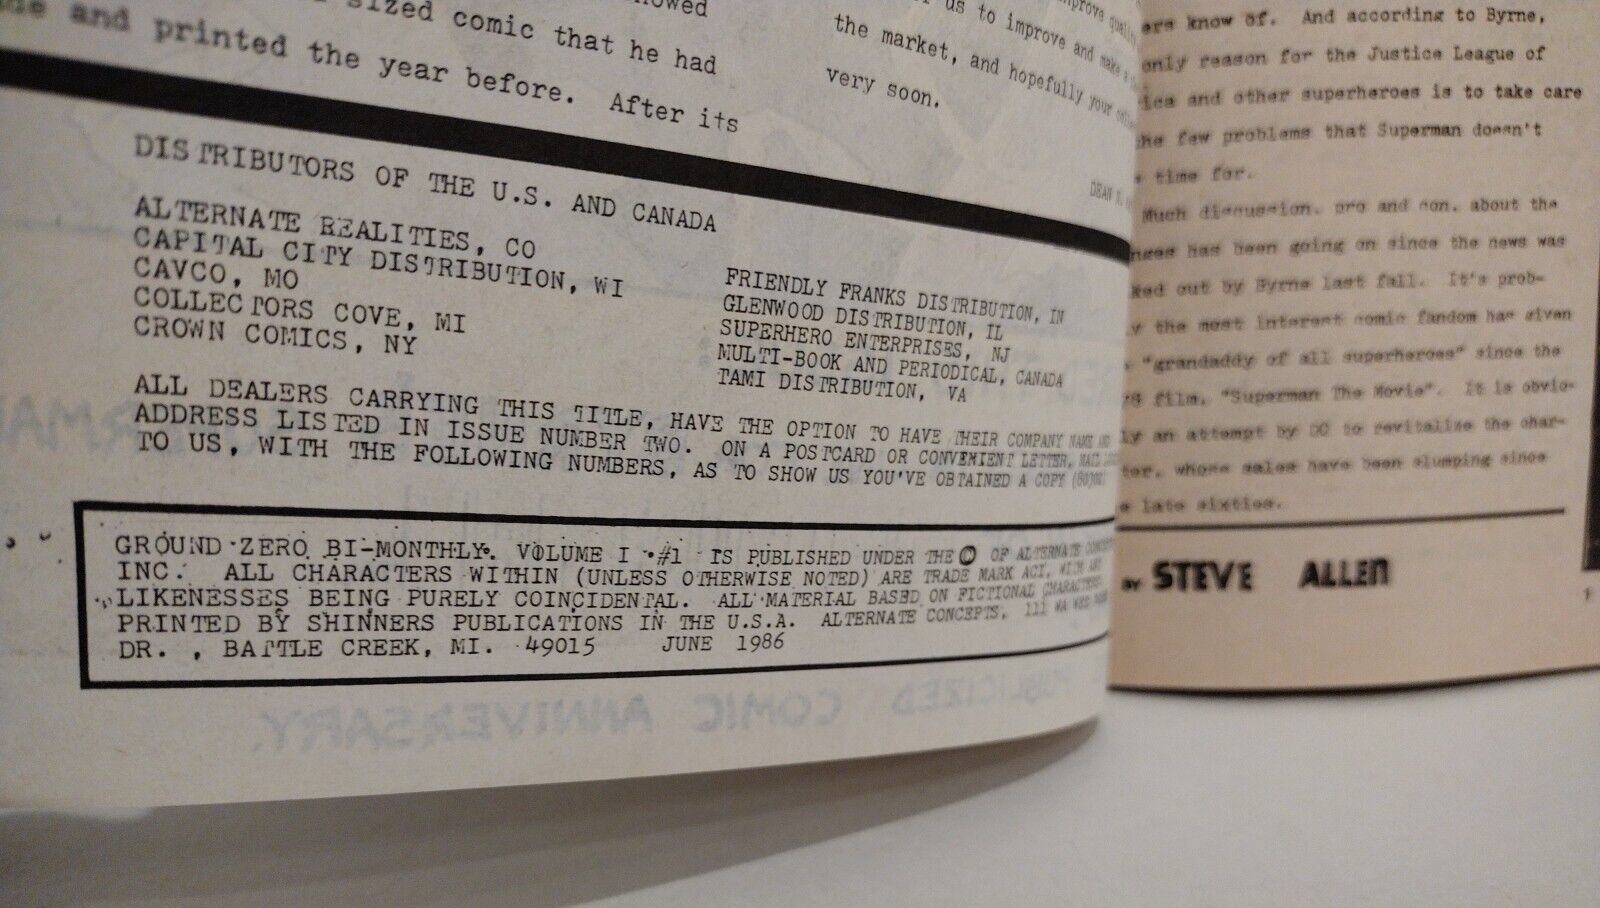 sized comic that he had
and printed the year before. After its
us to improve and make a
the market, and hopefully your
very soon.
DISTRIBUTORS OF THE U.S. AND CANADA
ALTERNATE REALITIES, CO
CAPITAL CITY DISTRIBUTION, WI
CAVCO, MO
COLLECTORS COVE, MI
CROWN COMICS, NY
FRIENDLY FRANKS DISTRIBUTION, IN
GLENWOOD DISTRIBUTION, IL
SUPERHERO ENTERPRISES, NJ
MULTI-BOOK AND PERIODICAL, CANADA
TAMI DISTRIBUTION, VA
ALL DEALERS CARRYING THIS TITLE, HAVE THE OPTION TO HAVE THEIR COMPANY NAME AND
ADDRESS LISTED IN ISSUE NUMBER TWO. ON A POSTCARD OR CONVENIENT LETTER, MAIL
TO US, WITH THE FOLLOWING NUMBERS, AS TO SHOW US YOU'VE OBTAINED A COPY
GROUND ZERO BI-MONTHLY. VOLUME I #1 IS PUBLISHED UNDER THE © OF ALTERNATE
INC. ALL CHARACTERS WITHIN (UNLESS OTHERWISE NOTED) ARE TRADE MARK ACT, WITH ANY
LIKENESSES BEING PURELY COINCIDENTAL. ALL MATERIAL BASED ON FICTIONAL
PRINTED BY SHINNERS PUBLICATIONS IN THE U.S.A. ALTERNATE CONCEPTS, 111
DR. , BATTLE CREEK, MI. 49015 JUNE 1986
know of. And according to Byrne,
only reason for the Justice League of
and other superheroes is to take care
few problems that Superman doesn't
time for.
Much discussion, pro and con, about the
has been going on since the news was
out by Byrne last fall. It's prob-
the most interest comic fandom has given
"grandaddy of all superheroes" since the
film, "Superman The Movie". It is obvio-
an attempt by DC to revitalize the char-
whose sales have been slumping since
late sixties.
BY STEVE ALLEN